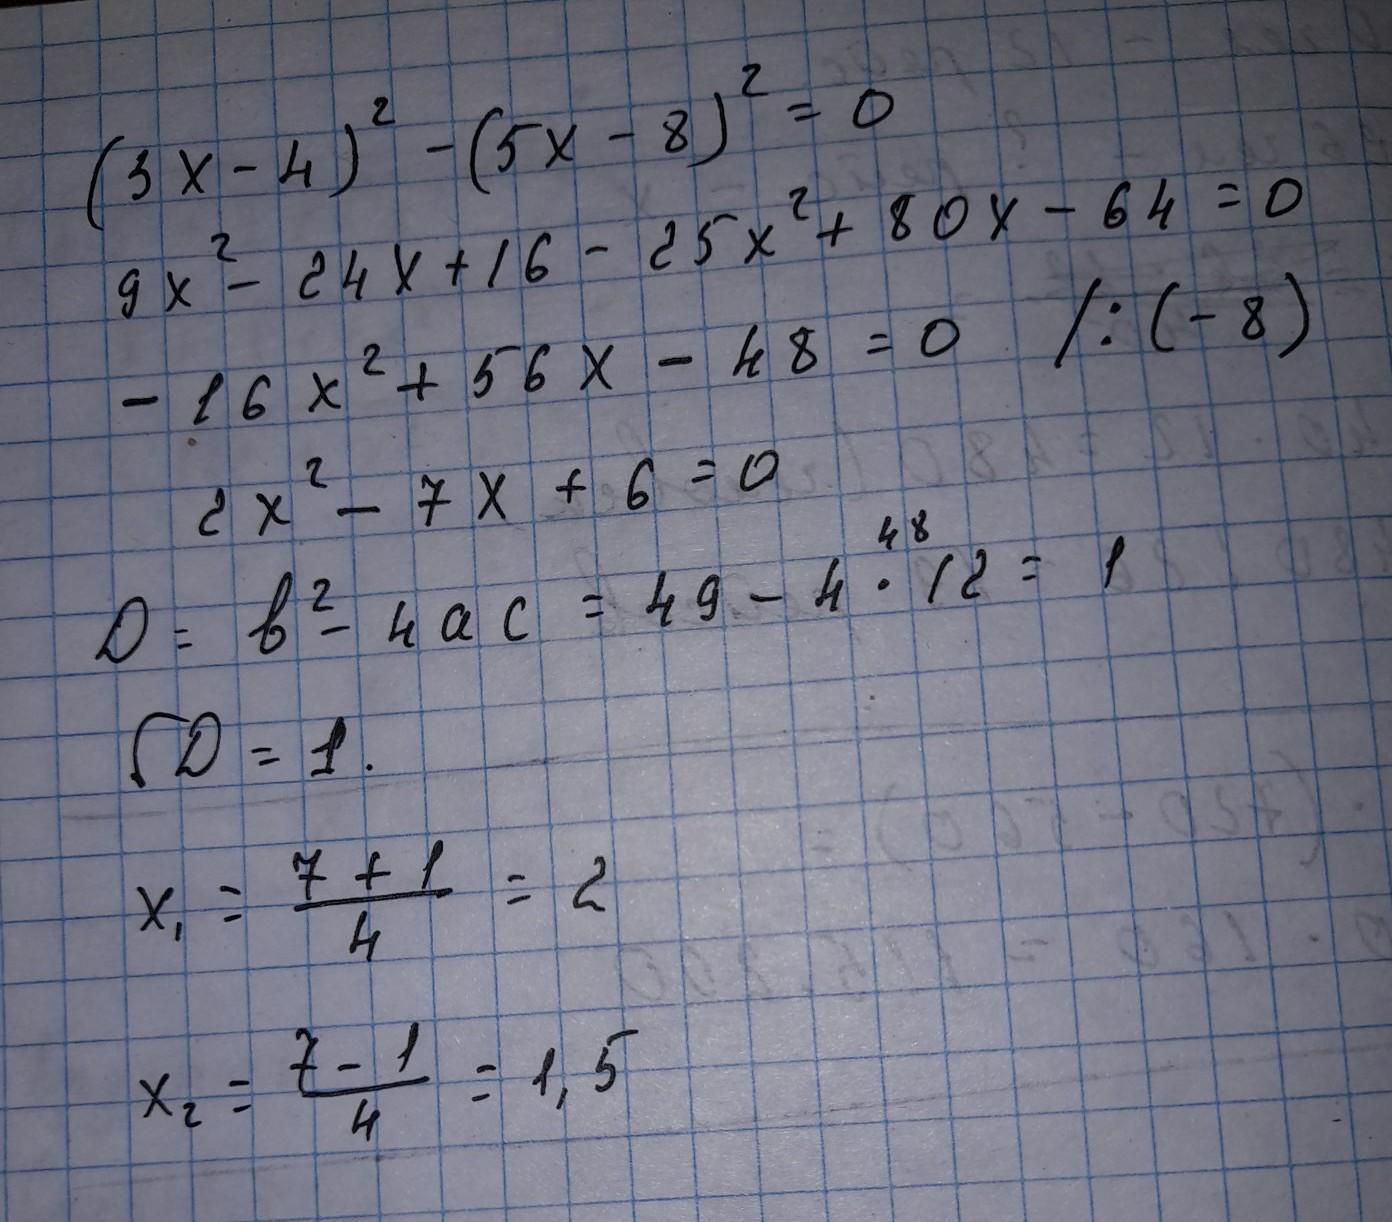 (3x-4)² - (5x-8)² = 0
9x² - 24x + 16 - 25x² + 80x - 64 = 0
- 16x² + 56x - 48 = 0 /:(-8)
2x² - 7x + 6 = 0
48
D = b² - 4ac = 49 - 4·12 = 1
√D = 1.
x₁ = (7+1)/4 = 2
x₂ = (7-1)/4 = 1,5